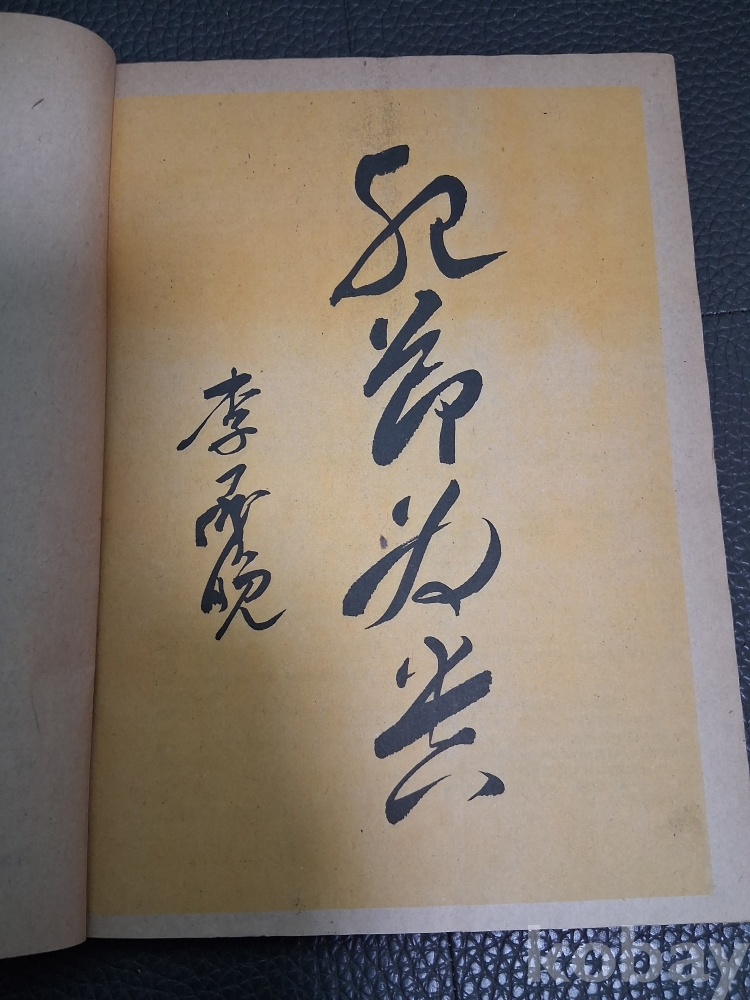 死節為貴
李承晚
kobay